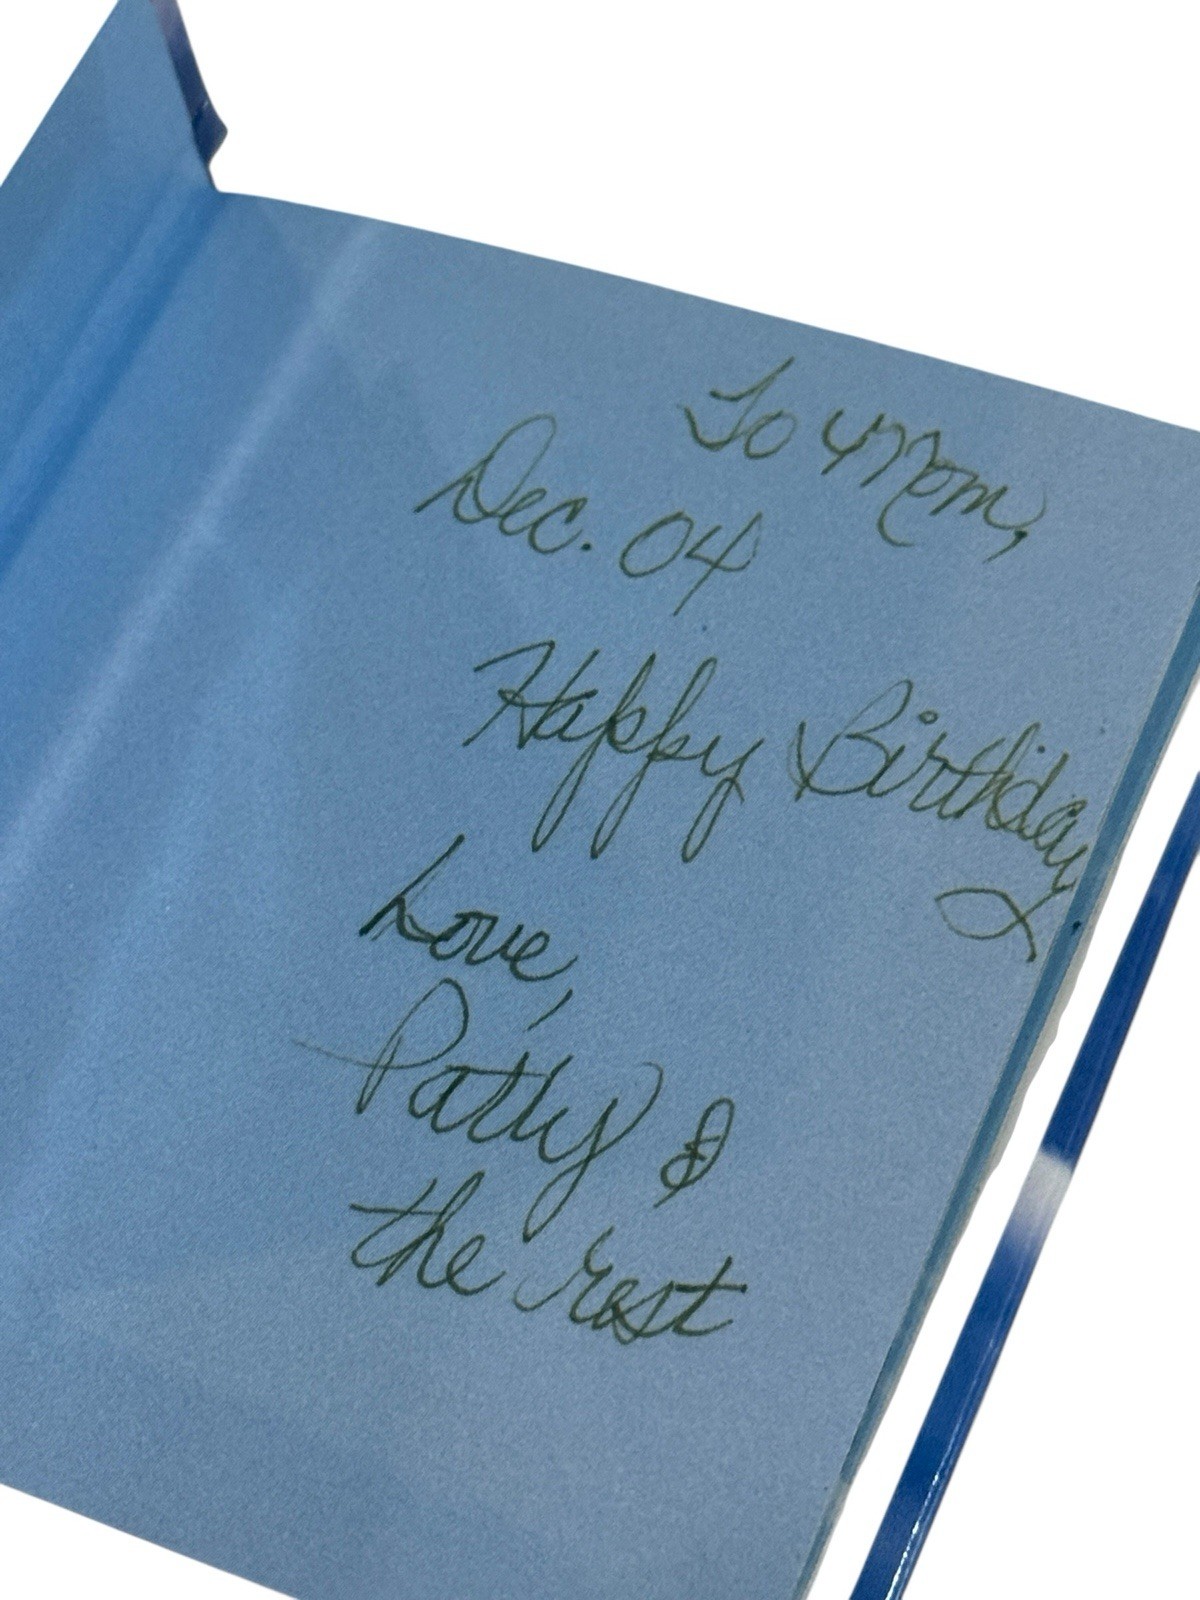 To Mom,
Dec. 04
Happy Birthday
Love,
Patty &
the rest